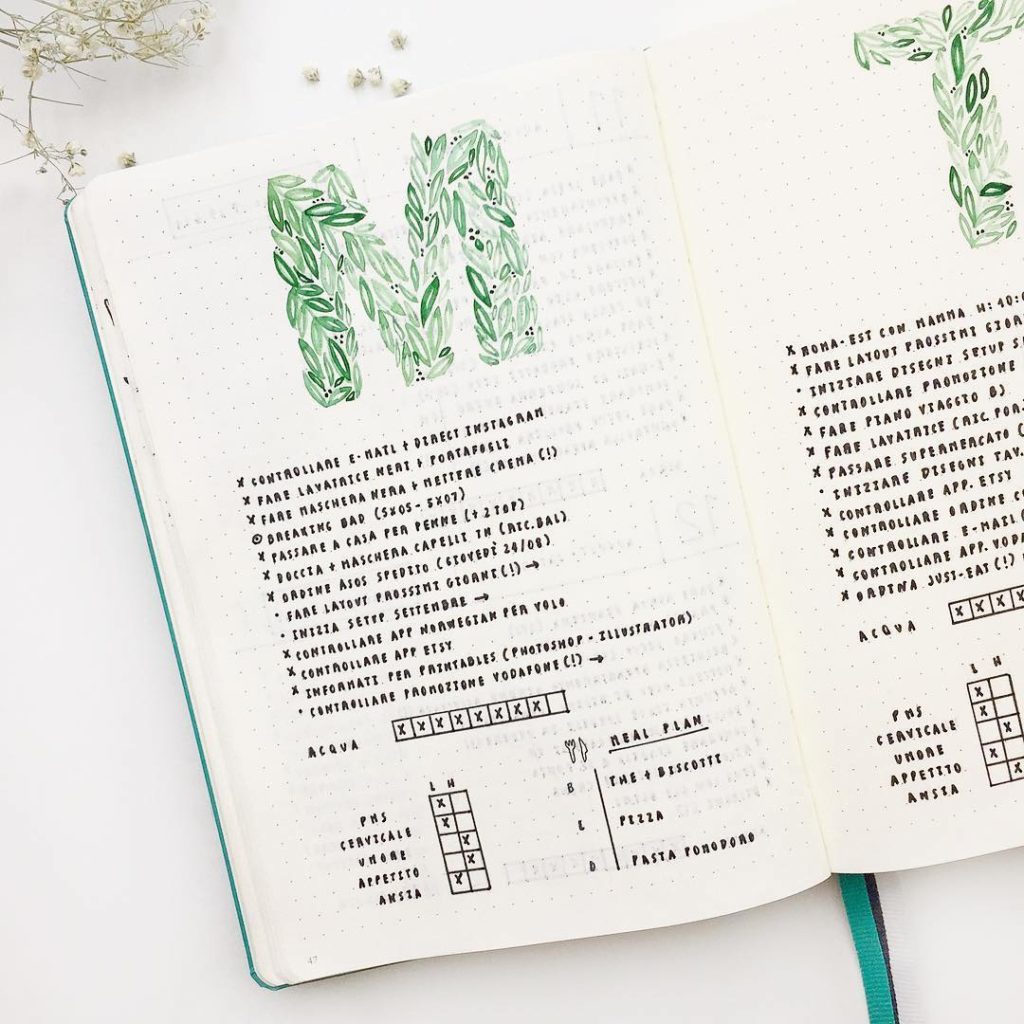 M
× CONTROLLARE E-MAIL + DIRECT INSTAGRAM
× FARE LAVATRICE NERI + PORTAFOGLI
× FARE MASCHERA NERA + METTERE CREMA (!)
⊙ BREAKING BAD (5X05 - 5X07)
× PASSARE A CASA PER PENNE (+ 2 TOP)
× DOCCIA + MASCHERA CAPELLI IN (RIC. BAL)
× ORDINE ASOS SPEDITO (GIOVEDÌ 24/08)
• FARE LAYOUT PROSSIMI GIORNI (!) →
• INIZIA SETUP SETTEMBRE →
× CONTROLLARE APP NORWEGIAN PER VOLO
× CONTROLLARE APP ETSY
× INFORMATI PER PRINTABLES (PHOTOSHOP - ILLUSTRATOR)
• CONTROLLARE PROMOZIONE VODAFONE (!) →
ACQUA × × × × × × × ×
MEAL PLAN
B THE + BISCOTTI
L PIZZA
D PASTA POMODORO
L H
PMS ×
CERVICALE ×
UMORE ×
APPETITO ×
ANSIA ×
47
T
× ROMA-EST CON MAMMA H: 10:
× FARE LAYOUT PROSSIMI GIOR
• INIZIARE DISEGNI SETUP S
× CONTROLLARE PROMOZIONE
× FARE PIANO VIAGGIO B)
× FARE LAVATRICE (RIC. POR.
× PASSARE SUPERMERCATO (
• INIZIARE DISEGNI TAV.
× CONTROLLARE APP. ETSY
× CONTROLLARE ORDINE C
× CONTROLLARE E-MAIL
× CONTROLLARE APP. VODA
× ORDINA JUST-EAT (!)
ACQUA × × × ×
L H
PMS ×
CERVICALE ×
UMORE ×
APPETITO ×
ANSIA ×